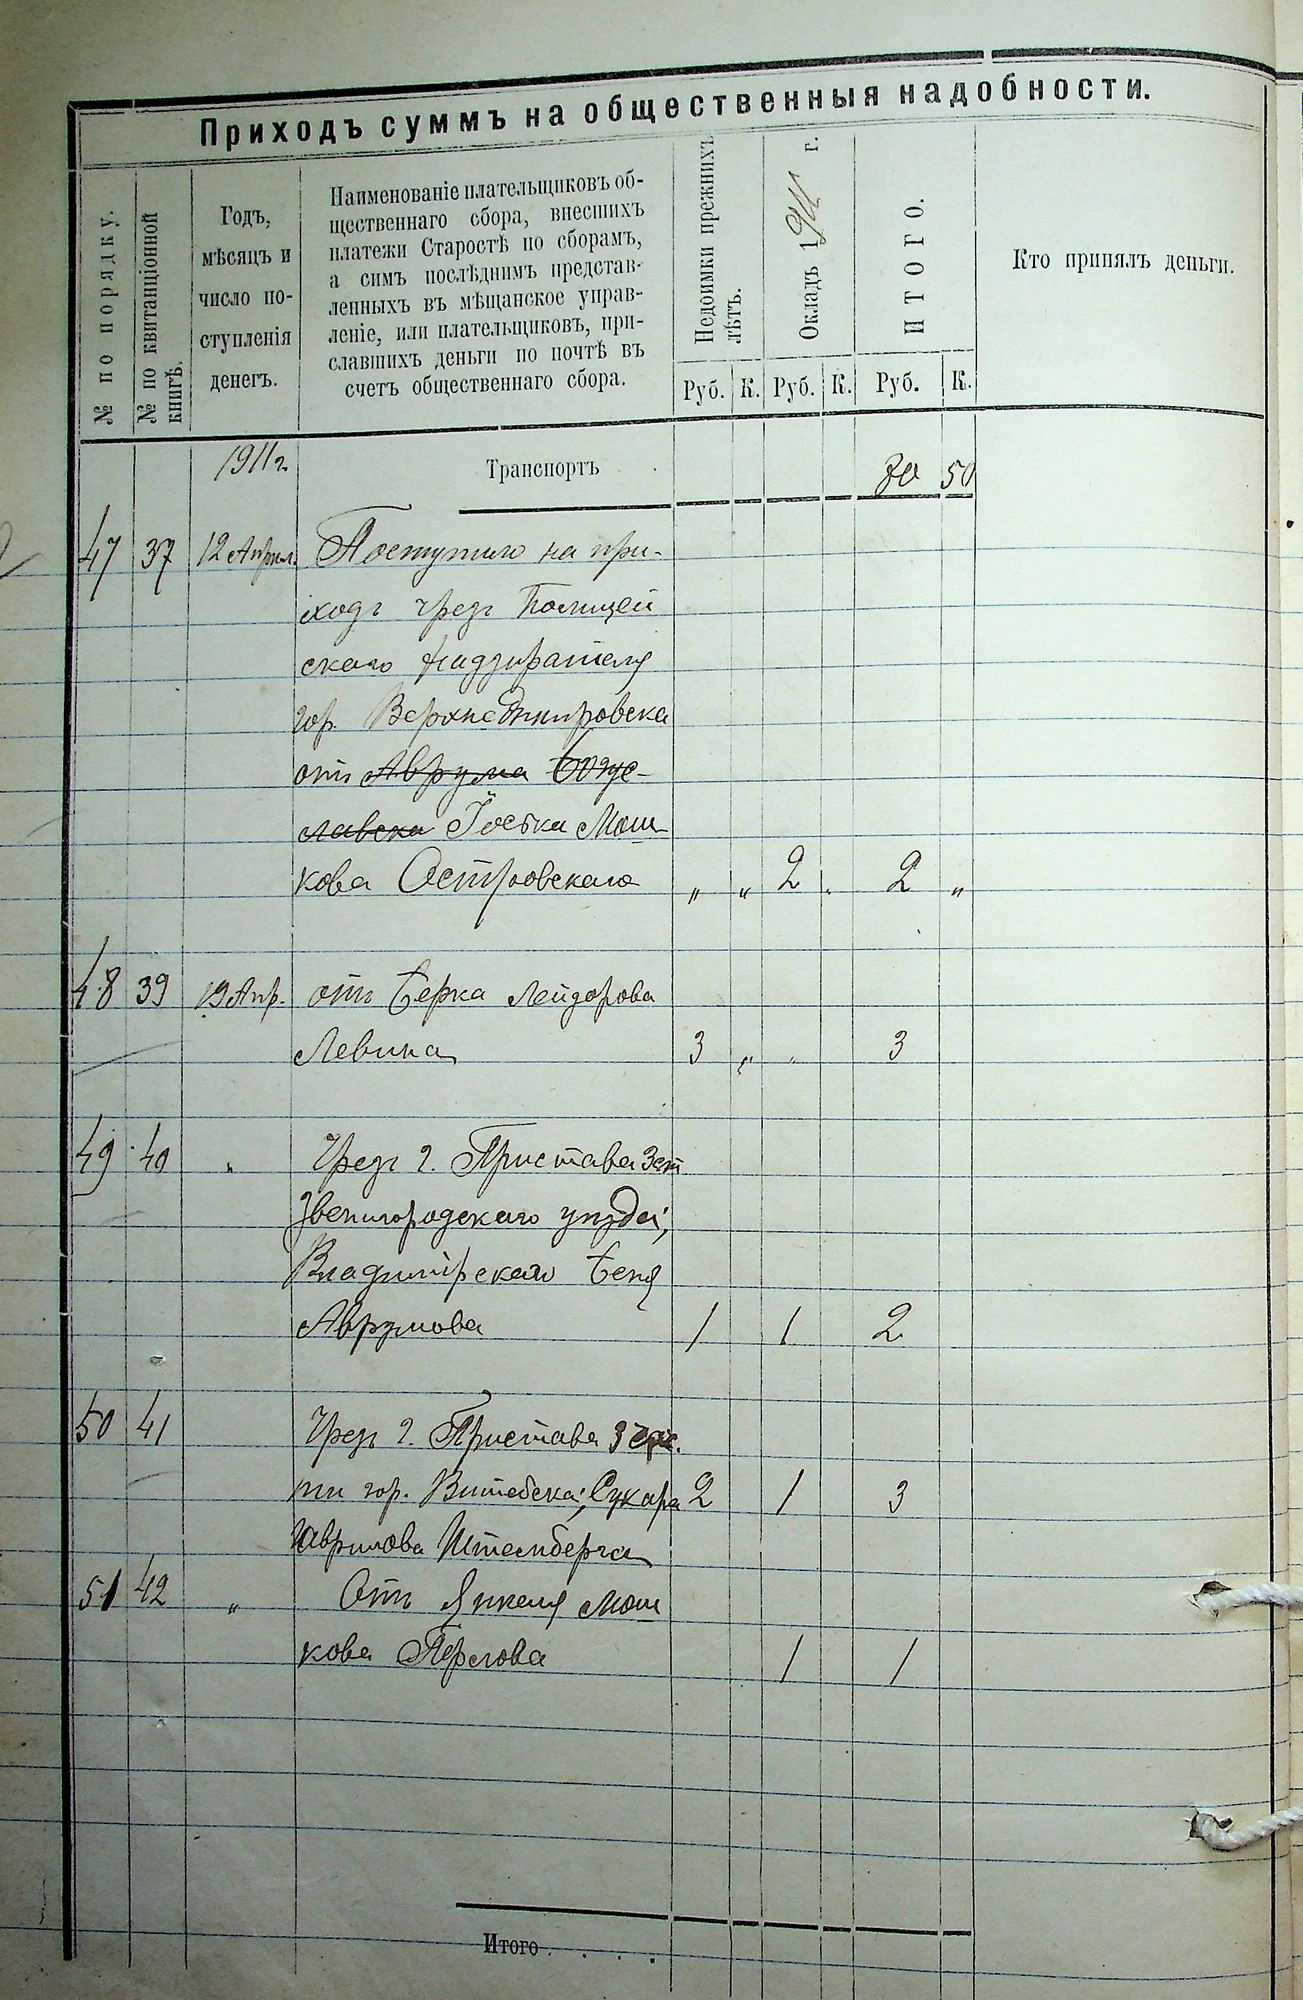 Приходъ суммъ на общественныя надобности.
№ по порядку.
№ по квитанціонной книгѣ.
Годъ,
мѣсяцъ и
число по-
ступленія
денегъ.
Наименованіе плательщиковъ об-
щественнаго сбора, внесшихъ
платежи Старостѣ по сборамъ,
а симъ послѣднимъ представ-
ленныхъ въ мѣщанское управ-
леніе, или плательщиковъ, при-
славшихъ деньги по почтѣ въ
счетъ общественнаго сбора.
Недоимки прежнихъ
лѣтъ.
Окладъ 1911 г.
ИТОГО.
Кто принялъ деньги.
Руб. К. Руб. К. Руб. К.
1911 г. Транспортъ 50
47 37 12 Апрѣл. Поступило на при-
ходъ чрезъ Полицей
скаго Надзирателя
гор. Верхнеднѣпровска
отъ Аврума Богус-
лавска Іоська Мош
кова Островскаго „ „ 2 „ 2 „
48 39 19 Апр. отъ Берка Лейзорова
Левина 3 „ „ 3
49 40 „ Чрезъ г. Пристава 3 ст
Звенигородскаго уѣзда;
Владимірскаго Беня
Аврумова 1 1 2
50 41 Чрезъ г. Пристава 3 час.
ти гор. Витебска; 2 1 3
Штемберга
51 42 „ Отъ Янкеля Мош
кова Перлова 1 1
Итого . . . .